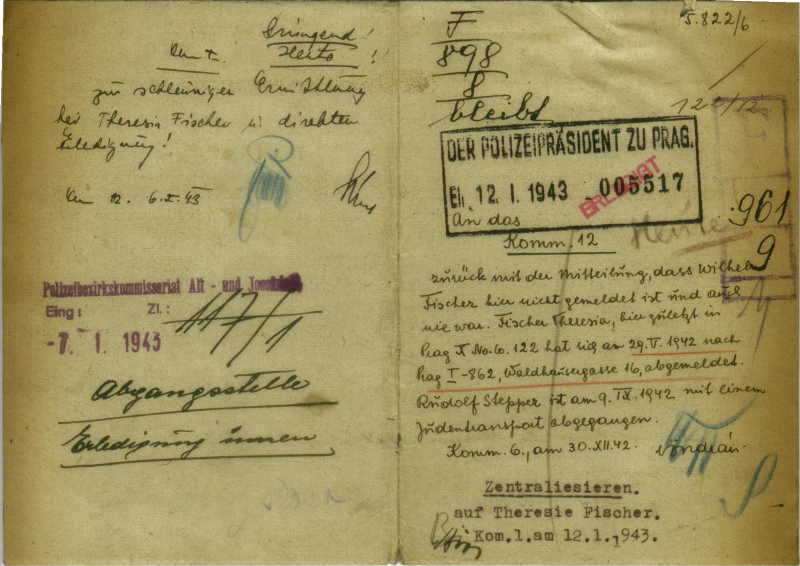 Dringend!
Heute!
zur schleuniger Ermittlung
bei Theresia Fischer u direkten
Erledigung!
12. 6.I.43
Polizeibezirkskommissariat Alt - und
Eing: Zl.:
-7. I. 1943
117/1
Abgangsstelle
Erledigung innen
F
898
8
bleibt
5.822/6
DER POLIZEIPRÄSIDENT ZU PRAG.
El. 12. I. 1943 005517
ERLEDIGT
An das
Komm. 12
Heute
961
9
zurück mit der Mitteilung, dass Wilhelm
Fischer hier nicht gemeldet ist und auch
nie war. Fischer Theresia, hier zuletzt in
Prag X No. 6. 122 hat sich am 29. IV. 1942 nach
Prag I -862, Waldhausergasse 16, abgemeldet.
Rudolf Stepper ist am 9. IX. 1942 mit einem
Judentransport abgegangen.
Komm. 6., am 30.XII.42.
Zentraliesieren.
auf Theresie Fischer.
Kom.1.am 12.1.1943.